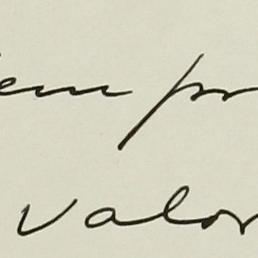 em pr
valor